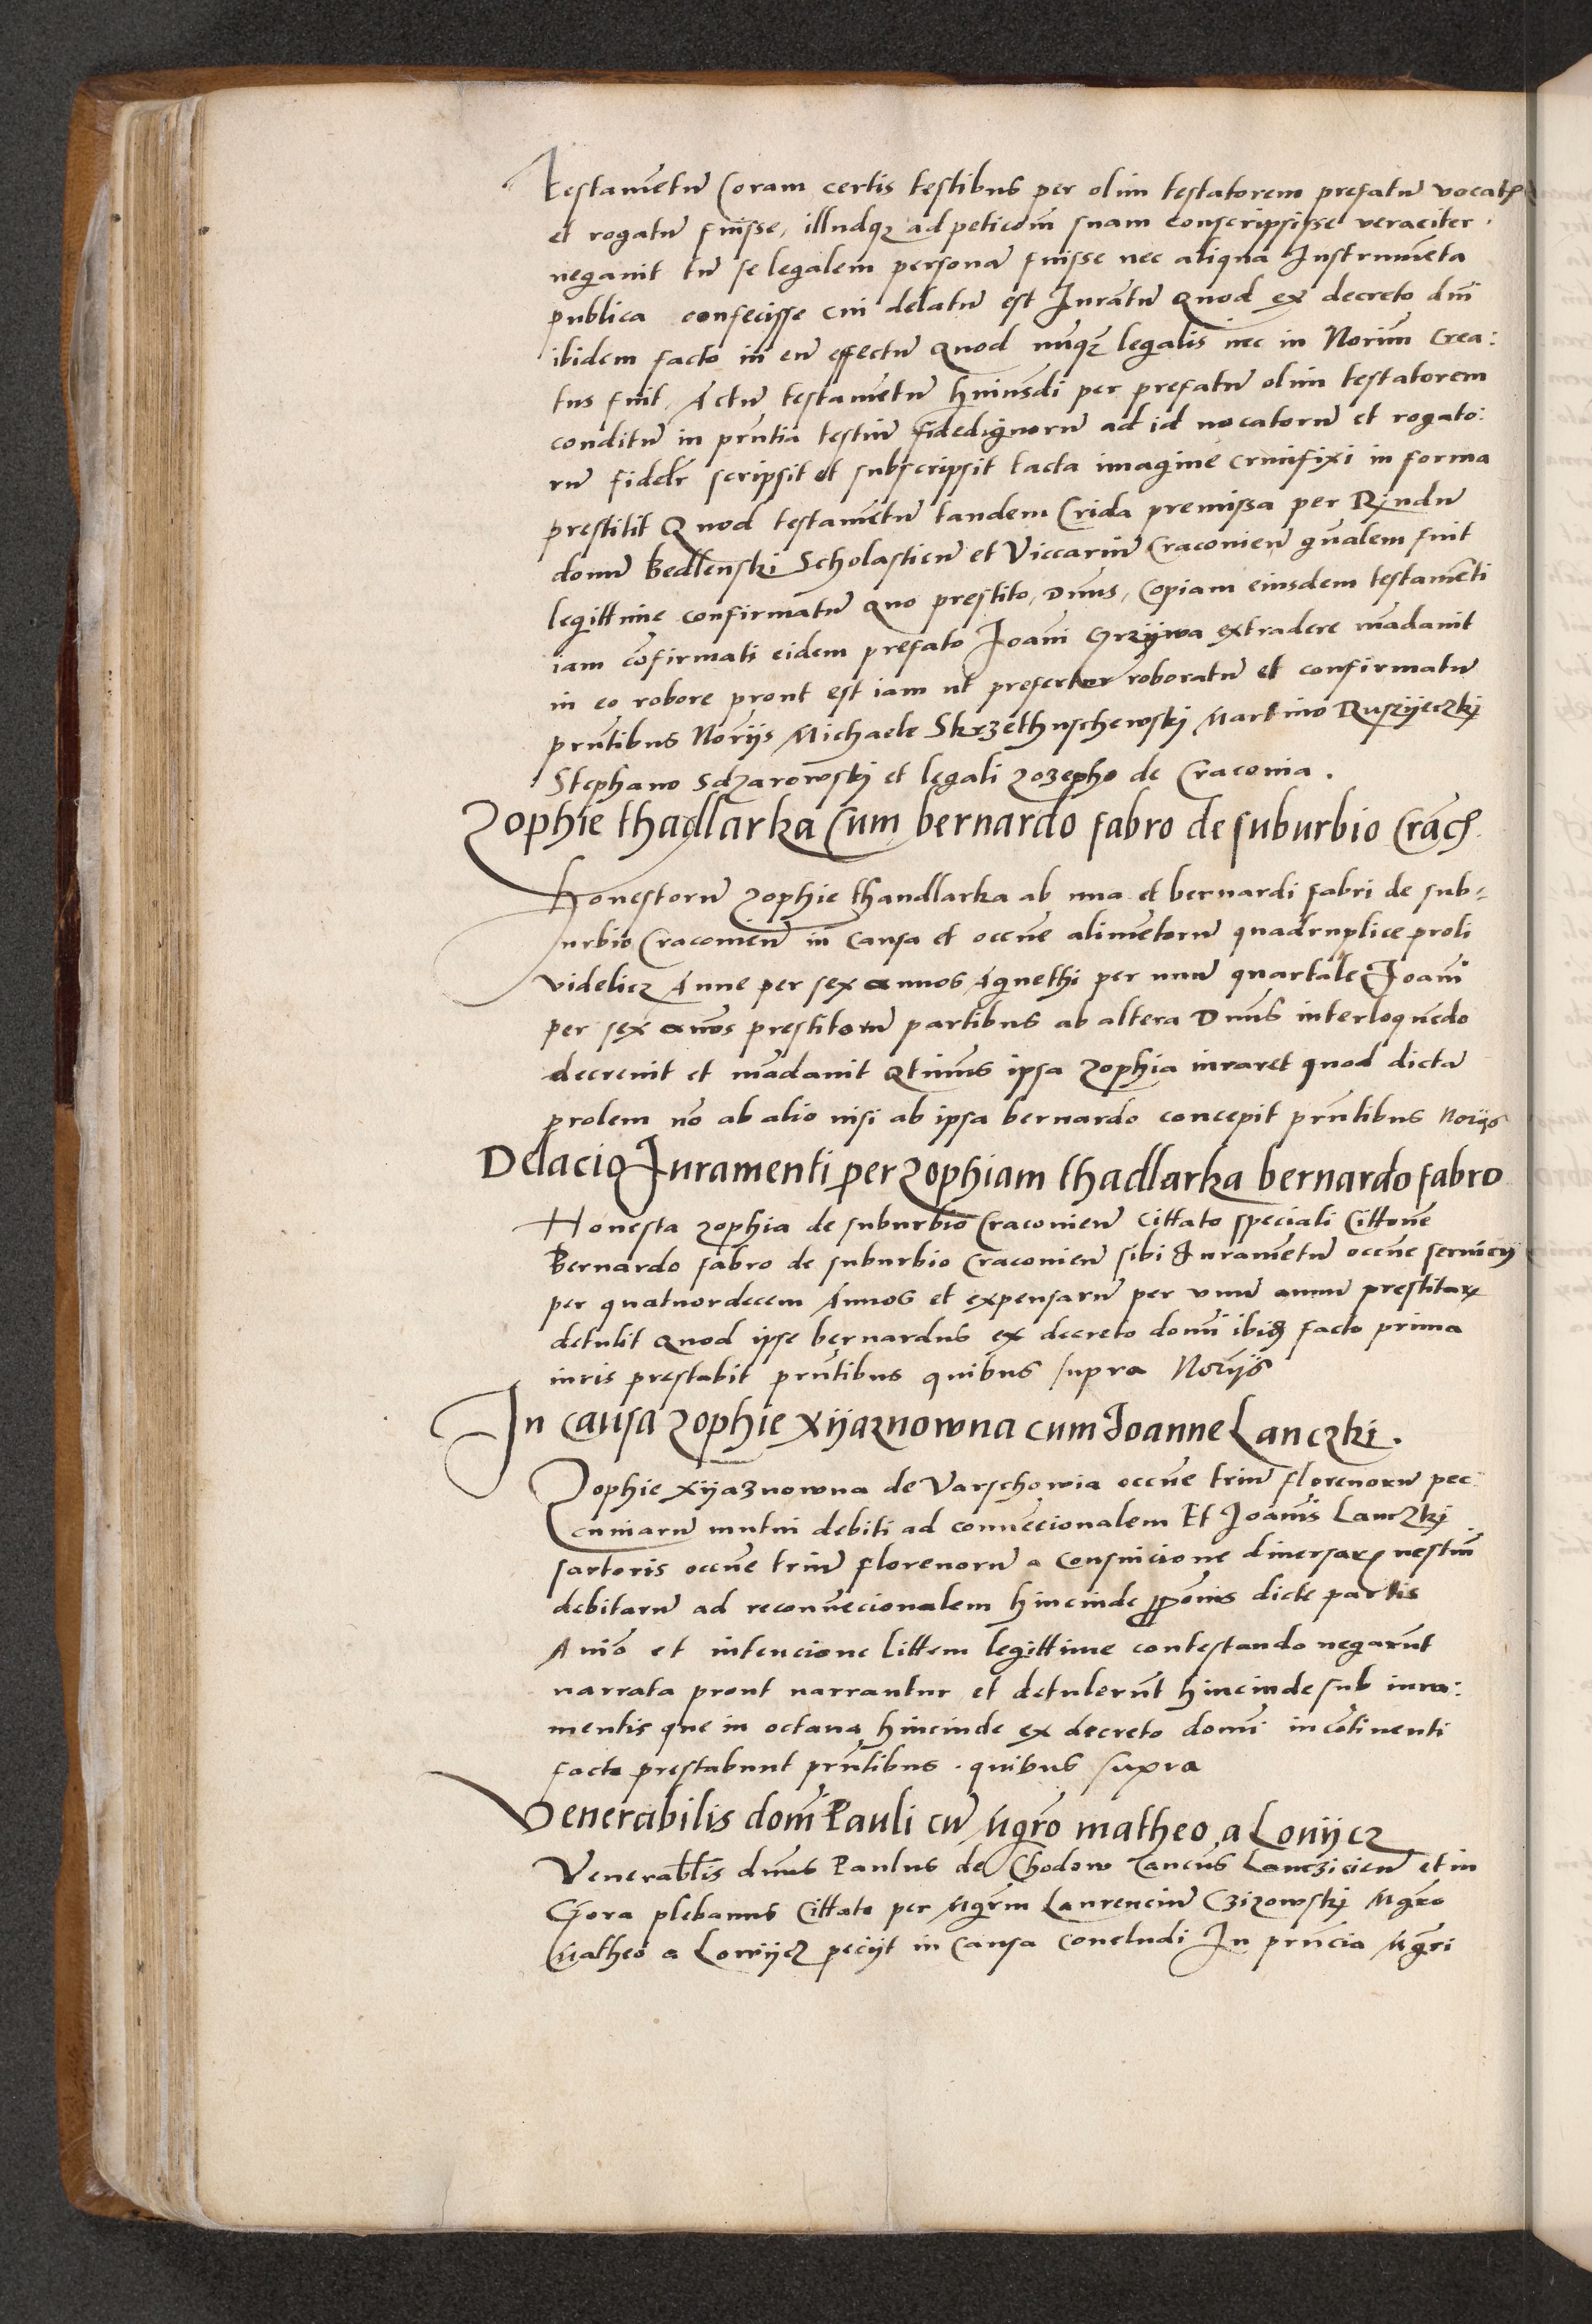 testametū Coram certis testibus per olim testatorem prefatū vocatū
et rogatū fuisse, illudqȝ ad peticōm suam conscripsisse veraciter.
negauit tn̄ se legalem personā fuisse nec aliqua Instrumēta
publica confecisse cui delatū est Iurātū Quod ex decreto dni
ibidem facto in eū effectū Quod nūqȝ legalis nec in Noriūm Crea:
tus fuit, Actū testamētū huiusdi per prefatū olim testatorem
conditū in prn̄tia testiū fidedignorū ad id uocatorū et rogato:
rū fidelr̄ scripsit et subscripsit tacta imagine Crucifixi in forma
prestitit Quod testamētū tandem Crida premissa per Rn̄dū
domū Bedlenski Scholasticū et Viccariū Craconien̄ gn̄alem fuit
legittime confirmatū Quo prestito, Dnūs, Copiam eiusdem testamēti
iam cōfirmati eidem prefato Joanī Grzywa extradere mādauit
in eo robore prout est iam ut prefertur roboratū et confirmatū
prn̄tibus Norijs Michaele Skrzethuschewskj Martino Ruszijeczkj
Stephano Sdzarowskj et legali Jozepho de Craconia.
Zophie thadlarka Cum bernardo fabro de suburbio Crac̄
Honestorū Zophie thandlarka ab una et bernardi fabri de sub-
urbio Craconien̄ in Causa et occn̄e alimētorū quadruplice proli
videlicȝ Anne per sex annos Agnethi per unū quartale Joanī
per sex annos prestitorū partibus ab altera Dnūs interloquēdo
decreuit et mādauit Qtinus ipsa Zophia iuraret quod dictā
prolem nō ab alio nisi ab ipsa bernardo concepit prn̄tibus Norijs
Delacio Juramenti per Zophiam thadlarka bernardo fabro
Honesta Zophia de suburbio Craconien̄ Cittato speciali Cittōne
Bernardo fabro de suburbio Craconien̄ sibi Iurametū occn̄e seruicij
per quatuordecem Annos et expensarū per unū annū prestitarꝝ
detulit Quod ipse bernardus ex decreto domī ibidē facto prima
iuris prestabit prn̄tibus quibus supra Norijs
In causa Zophie Xijaznowna cum Joanne Lanczki.
Zophie Xijaznowna de Varschowia occn̄e triū florenorū pec
cuniarū mutui debiti ad conuēcionalem Et Joanīs Lanczkj
sartoris occn̄e triū florenorū a Consuicione diuersarꝝ uestiū
debitarū ad reconuēcionalem hincinde ꝓpōnis dicte partis
Anīo et intencione littem legittime contestando negarūt
narrata prout narrantur et detulerūt hincinde sub iura:
mentis que in octaua hincinde ex decreto domī incōtinenti
facto prestabunt prn̄tibus. quibus supra
Venerabilis domī Pauli cū Mgrō matheo a Lovijcz
Venerabīlis dnūs Paulus de Chodow Cancūs Lanczicien̄ et in
Gora plebanus Cittato per Mgrm̄ Laurenciū Czizowskj Mgrō
Matheo a Lowijcz pecijt in Causa Concludi In prn̄cia Mgrī